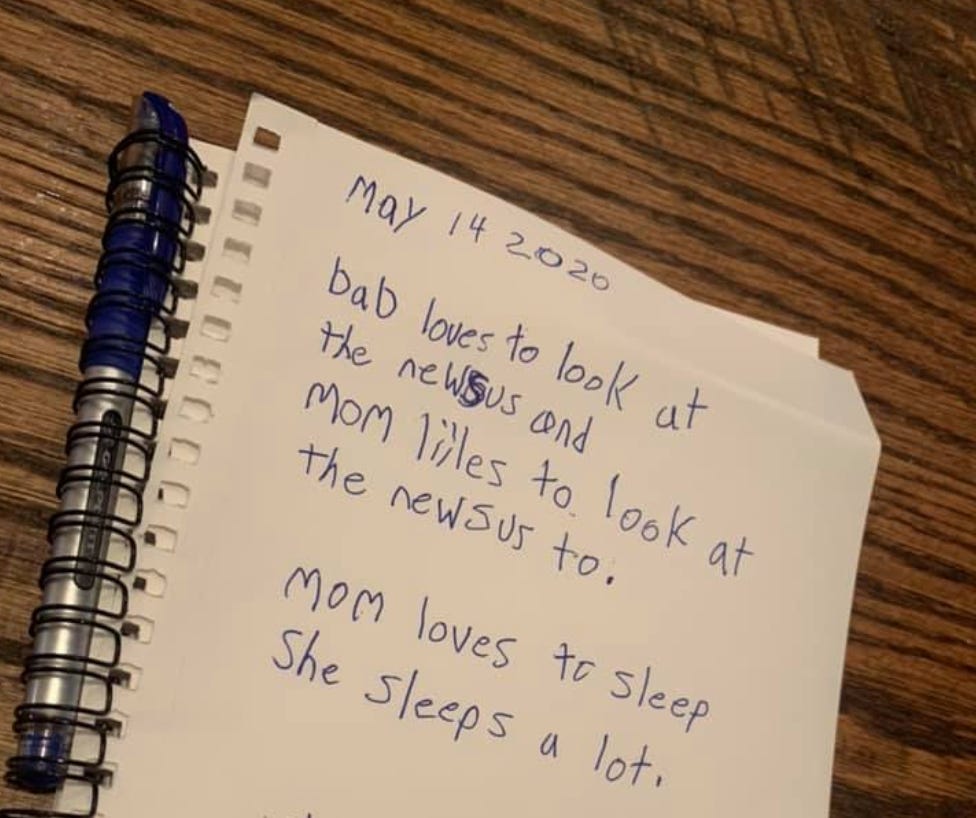 May 14 2020
DaD loves to look at
the newsus and
Mom liiles to look at
the newsus to.
Mom loves to sleep
She sleeps a lot.